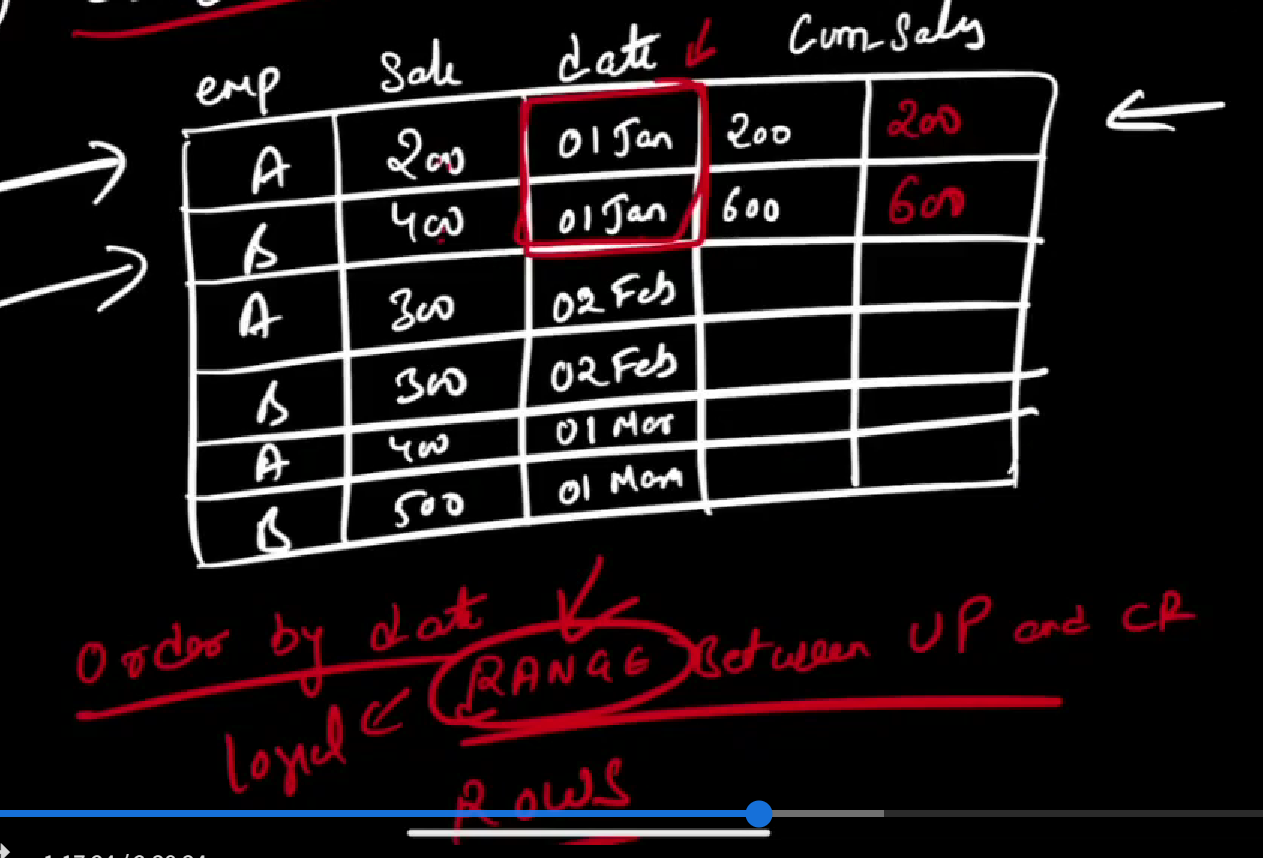 emp Sale date Cum_Sales
A 200 01 Jan 200 200
B 400 01 Jan 600 600
A 300 02 Feb
B 300 02 Feb
A 400 01 Mar
B 500 01 Mar
Order by date RANGE Between UP and CR
ROWS